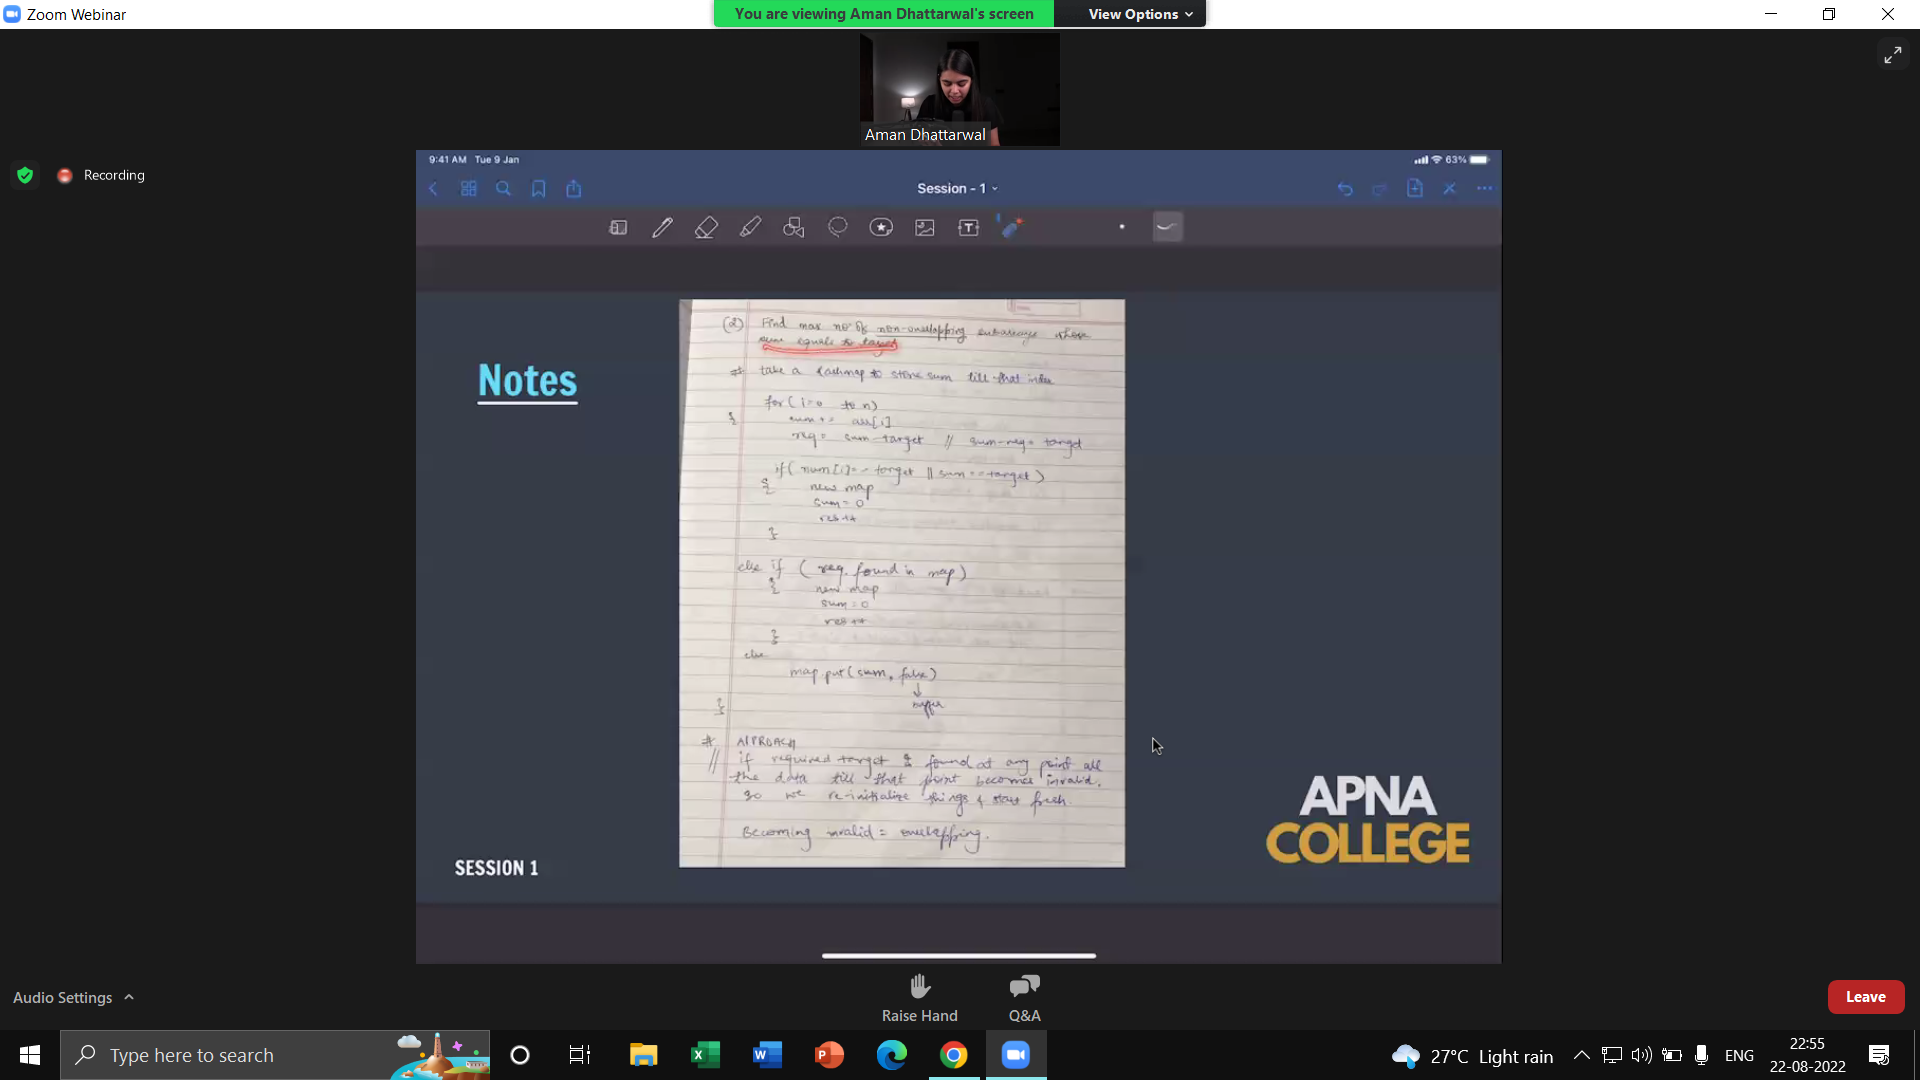 Zoom Webinar
You are viewing Aman Dhattarwal's screen
View Options
Aman Dhattarwal
Recording
9:41 AM Tue 9 Jan
63%
Session - 1
Notes
(2) Find max no of non-overlapping subarrays whose
sum equals to target
# take a hashmap to store sum till that index
for( i=0 to n)
{ sum += arr[i]
req = sum-target // sum-req = target
if( num[i]== target || sum == target)
{ new map
sum = 0
res++
}
else if ( req. found in map)
{ new map
sum = 0
res++
}
else
map.put(sum, false)
↓
}
# APPROACH
// if required target is found at any point all
the data till that point becomes invalid.
so we re-initialize things & start fresh.
Becoming invalid = overlapping.
APNA
COLLEGE
SESSION 1
Audio Settings
Raise Hand
Q&A
Leave
Type here to search
27°C Light rain
ENG
22:55
22-08-2022